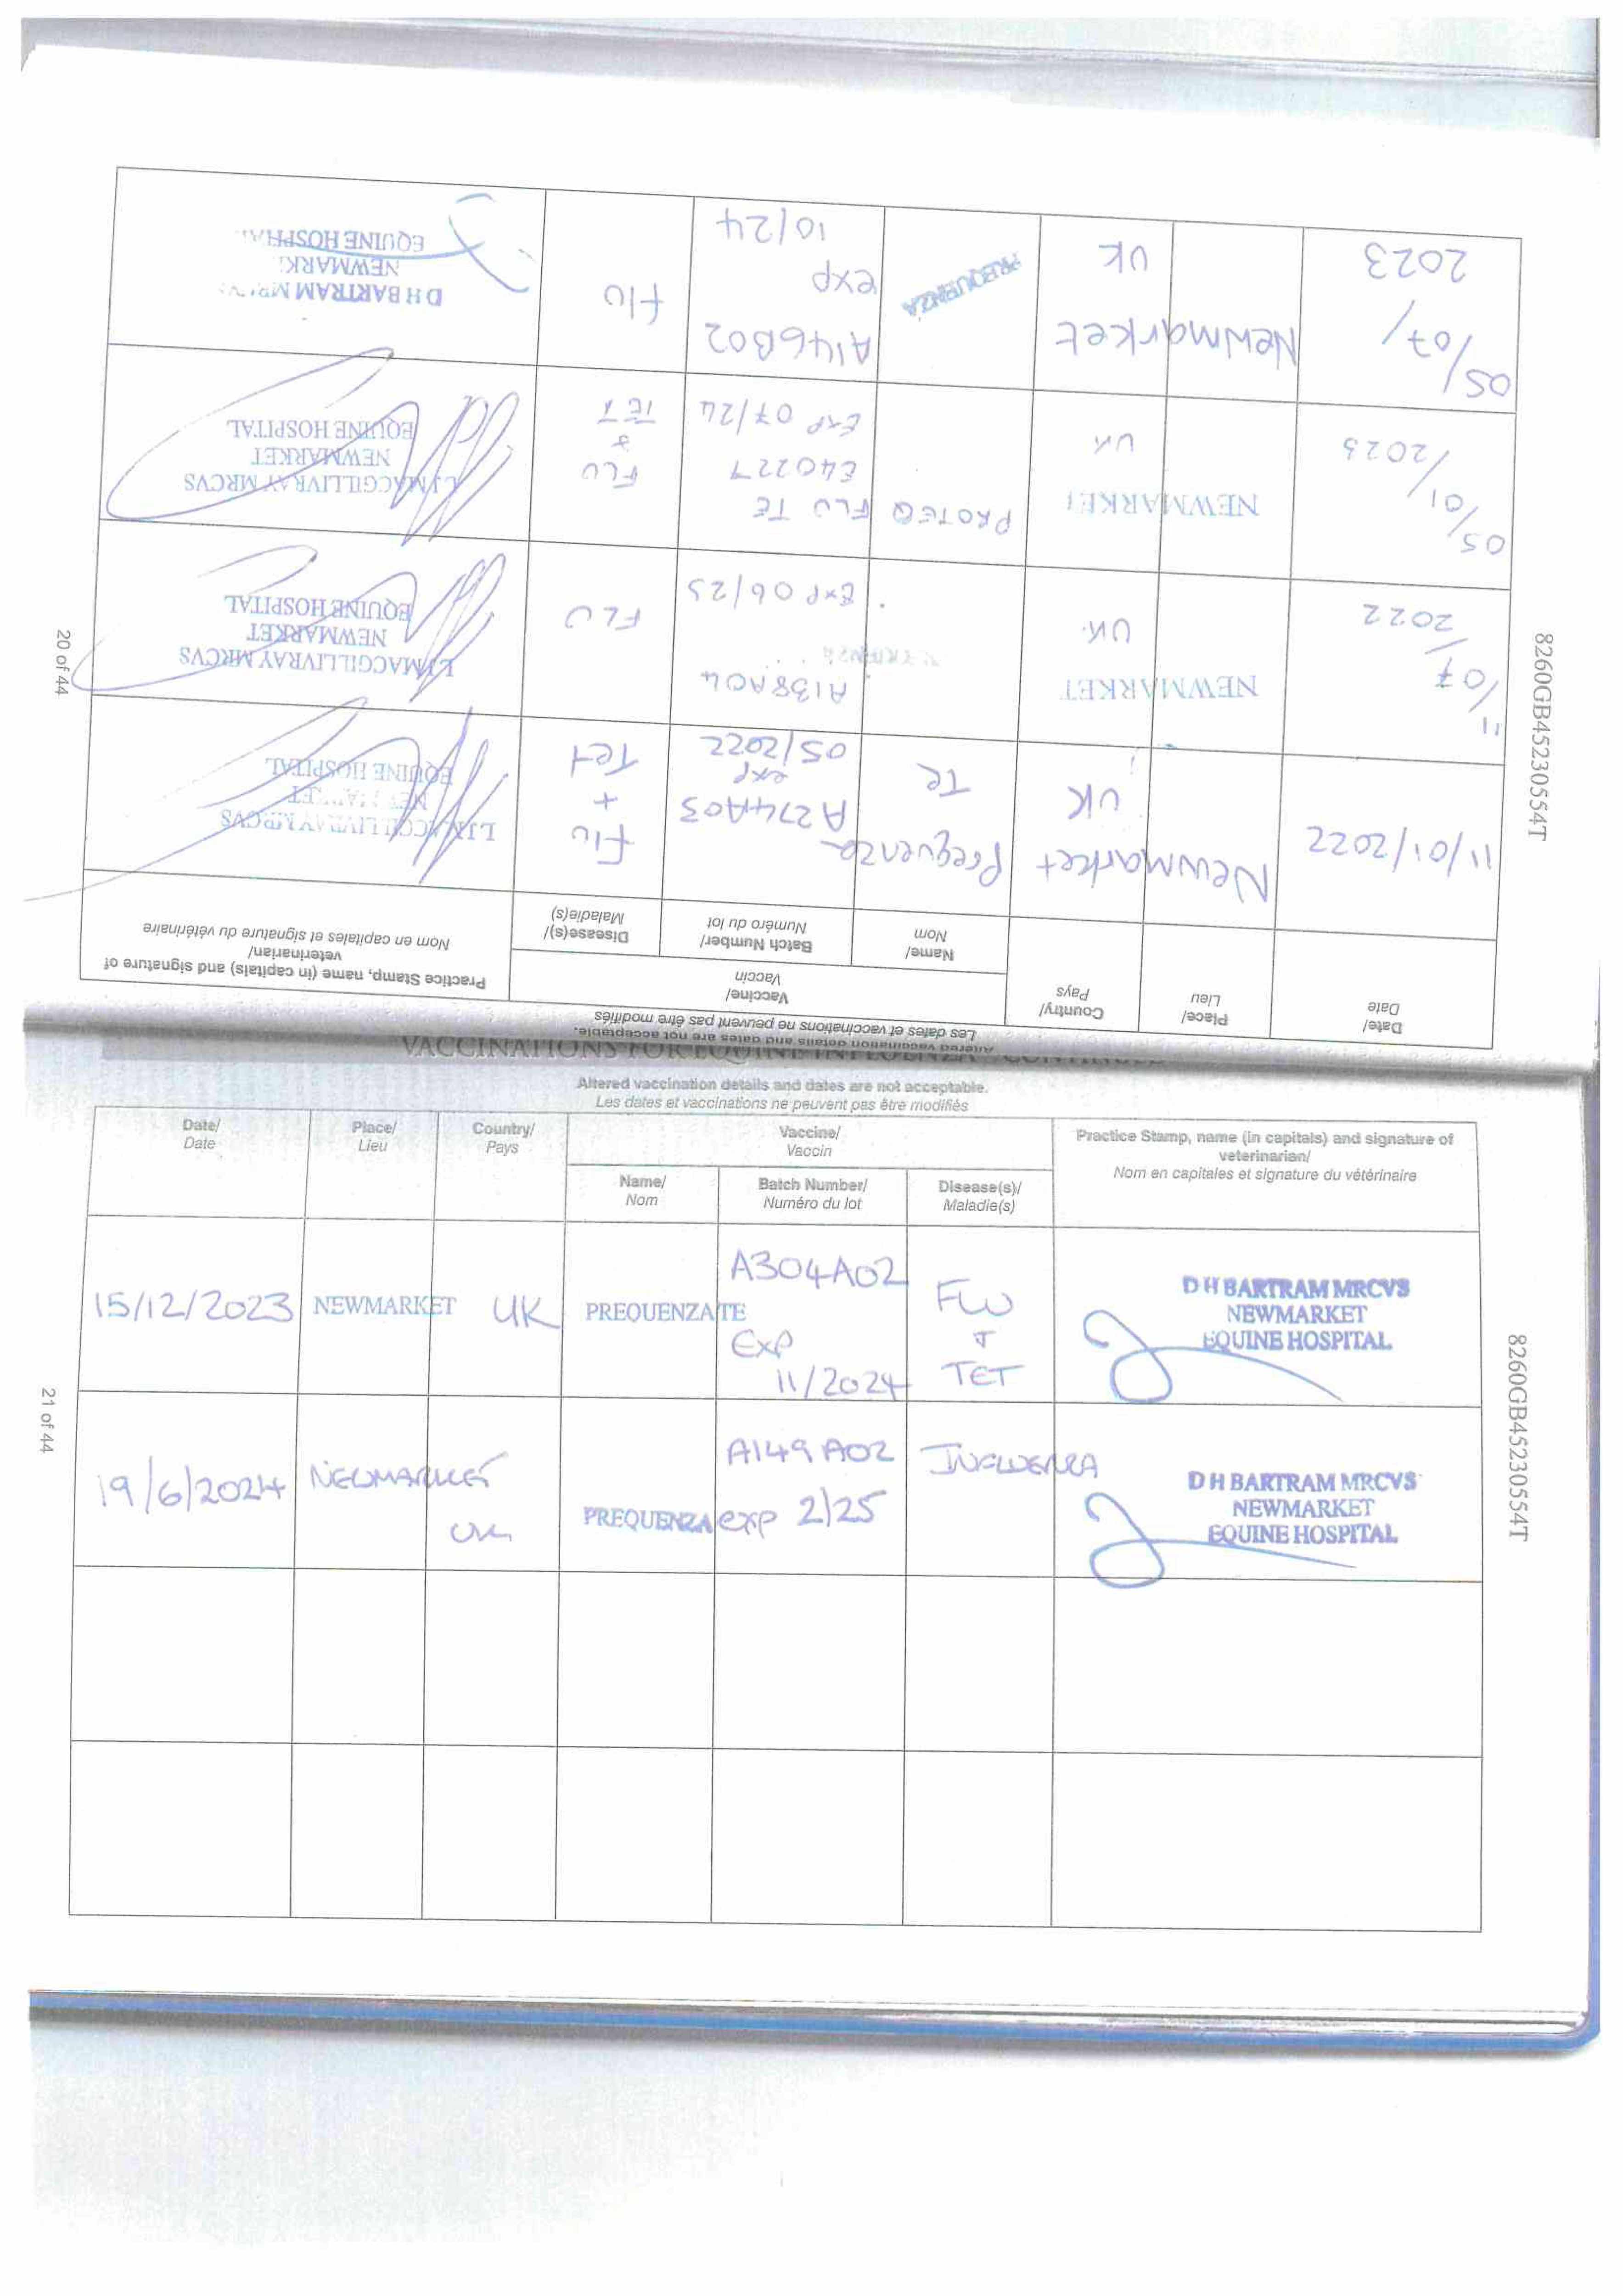 8260GB45230554T
20 of 44
Altered vaccination details and dates are not acceptable.
Les dates et vaccinations ne peuvent pas être modifiés
Date/ Date
Place/ Lieu
Country/ Pays
Vaccine/ Vaccin
Name/ Nom
Batch Number/ Numéro du lot
Disease(s)/ Maladie(s)
Practice Stamp, name (in capitals) and signature of
veterinarian/
Nom en capitales et signature du vétérinaire
11/01/2022 Newmarket UK Prequenza Te A274A03 exp 05/2022 Flu + Tet
L J MACGILLIVRAY MRCVS
NEWMARKET
EQUINE HOSPITAL
11/07/2022 NEWMARKET UK. A138A04 Exp 06/23 FLU
L J MACGILLIVRAY MRCVS
NEWMARKET
EQUINE HOSPITAL
05/01/2023 NEWMARKET UK PROTEQ FLU TE E40227 Exp 07/24 FLU & TET
L J MACGILLIVRAY MRCVS
NEWMARKET
EQUINE HOSPITAL
05/07/2023 Newmarket UK PREQUENZA A146B02 exp 10/24 flu
D H BARTRAM MRCVS
NEWMARKET
EQUINE HOSPITAL
VACCINATIONS FOR EQUINE INFLUENZA - CONTINUED
Altered vaccination details and dates are not acceptable.
Les dates et vaccinations ne peuvent pas être modifiés
Date/ Date
Place/ Lieu
Country/ Pays
Vaccine/ Vaccin
Name/ Nom
Batch Number/ Numéro du lot
Disease(s)/ Maladie(s)
Practice Stamp, name (in capitals) and signature of
veterinarian/
Nom en capitales et signature du vétérinaire
15/12/2023 NEWMARKET UK PREQUENZA TE A304A02 Exp 11/2024 FLU + TET
D H BARTRAM MRCVS
NEWMARKET
EQUINE HOSPITAL
19/6/2024 NEWMARKET UK PREQUENZA A149A02 exp 2/25 INFLUENZA
D H BARTRAM MRCVS
NEWMARKET
EQUINE HOSPITAL
21 of 44
8260GB45230554T